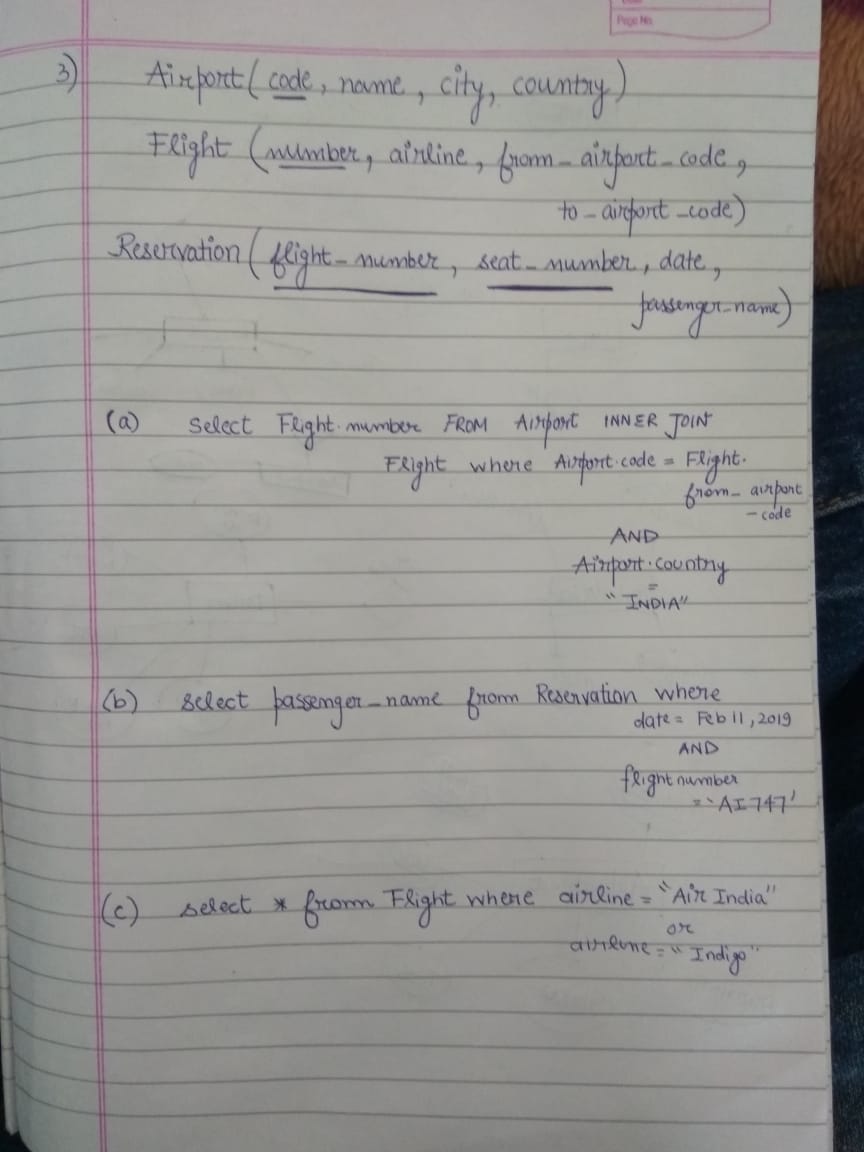 Page No.
3) Airport (code, name, city, country)
Flight (number, airline, from_airport_code,
to_airport_code)
Reservation (flight_number, seat_number, date,
passenger_name)
(a) select Flight.number FROM Airport INNER JOIN
Flight where Airport.code = Flight.
from_airport
-code
AND
Airport.country
=
"INDIA"
(b) select passenger_name from Reservation where
date = Feb 11, 2019
AND
flight number
= 'AI 747'
(c) select * from Flight where airline = "Air India"
or
airline = "Indigo"